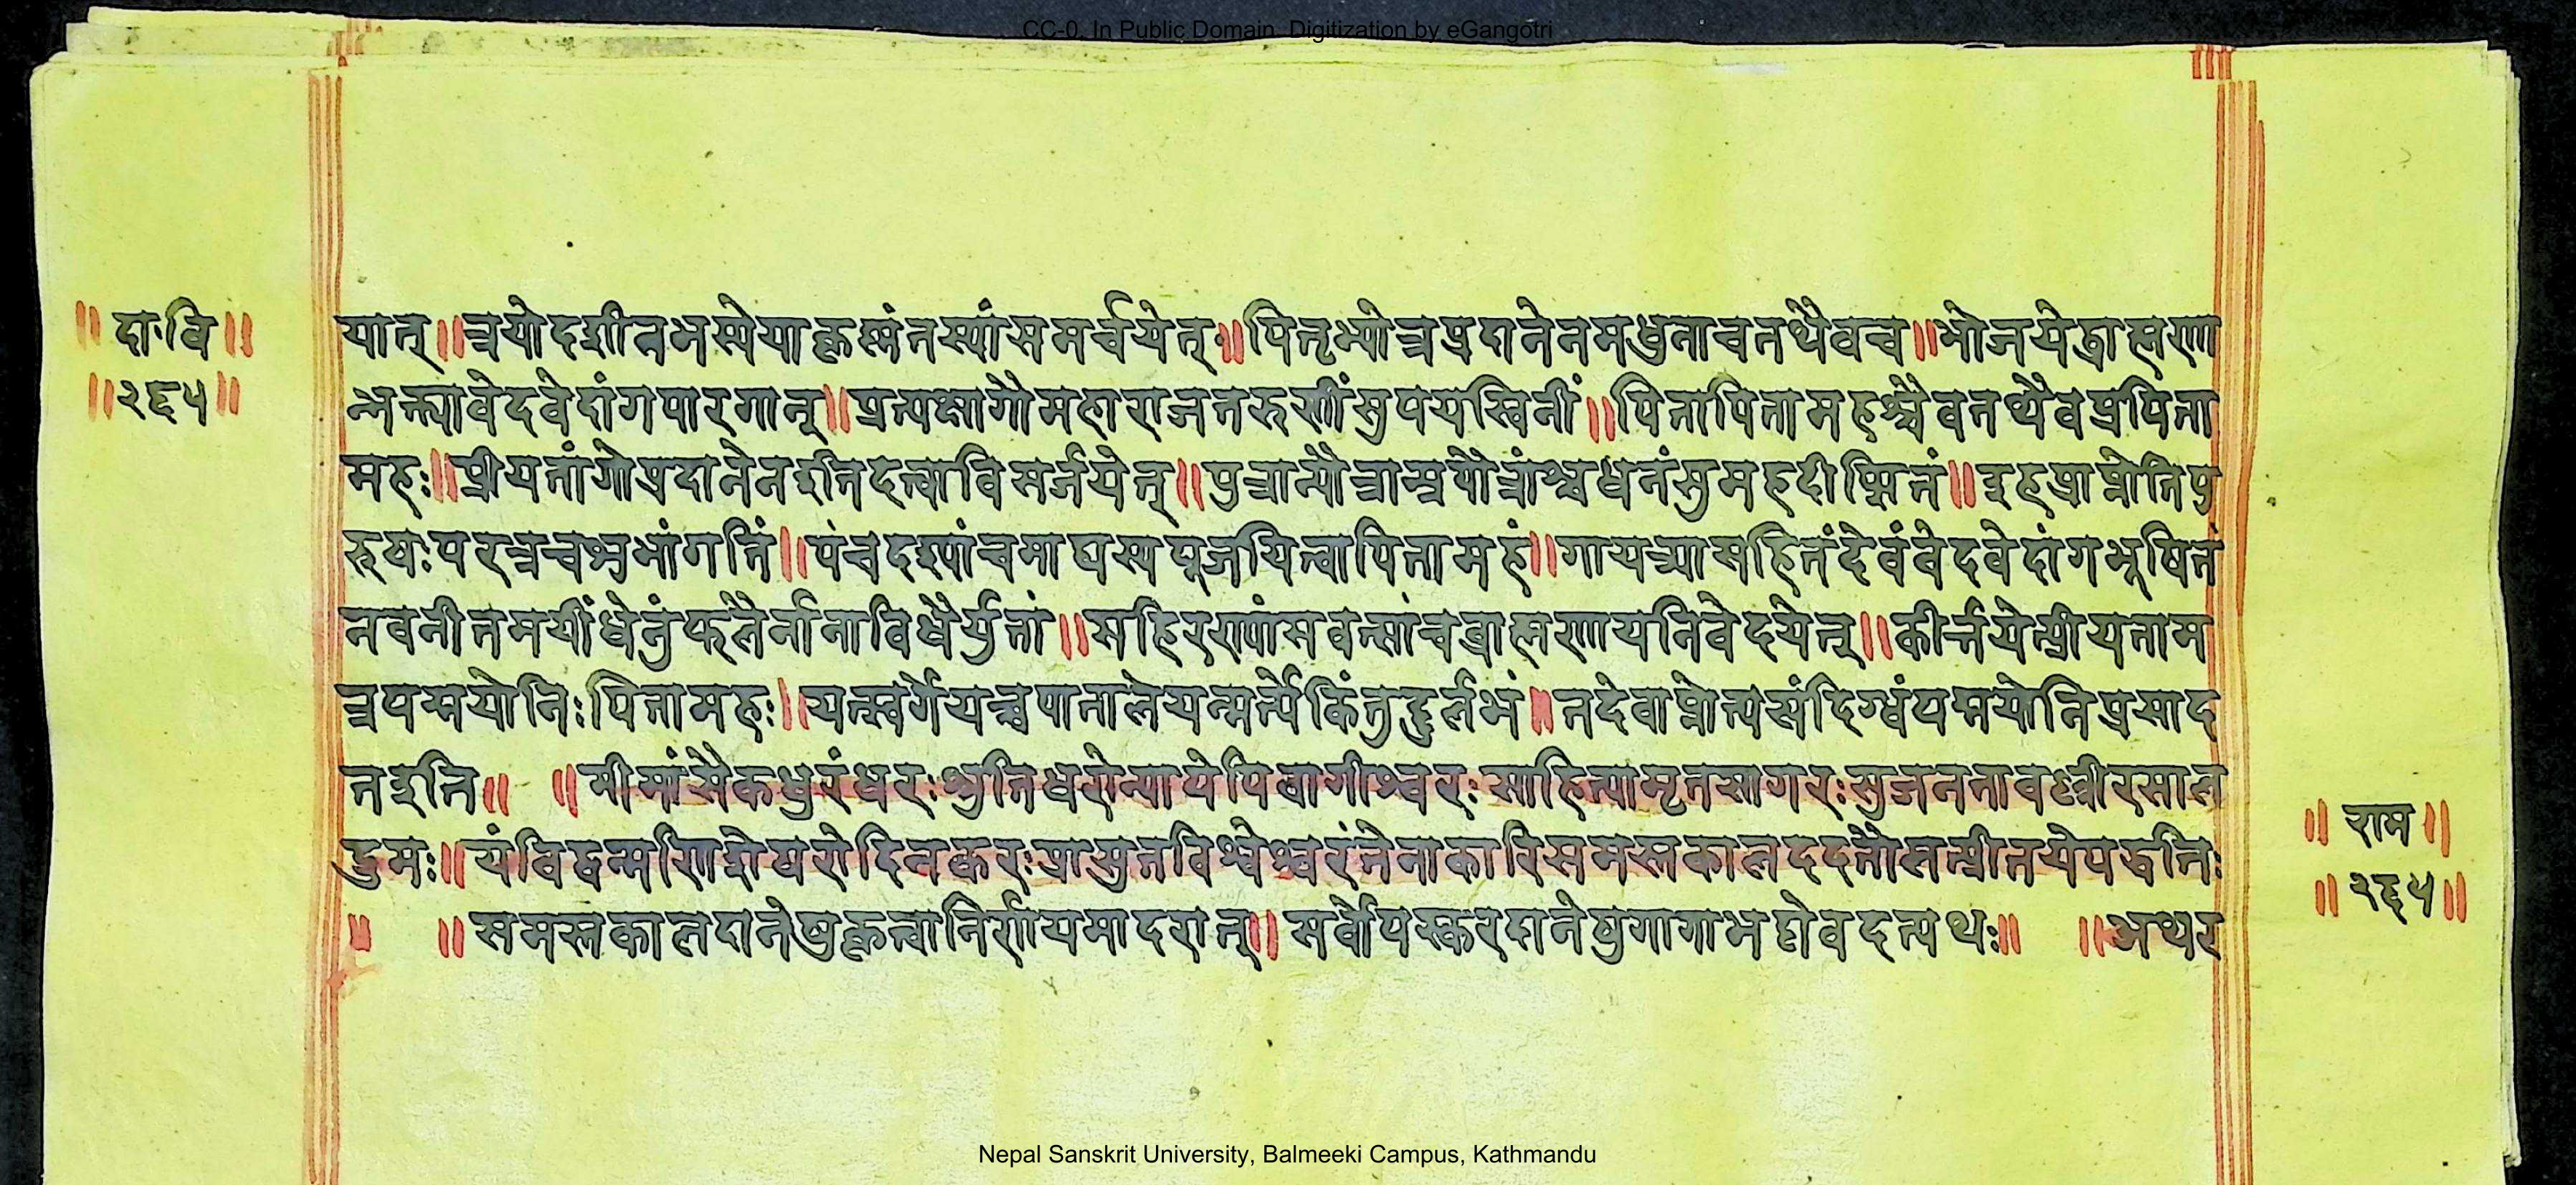 CC-0. In Public Domain. Digitization by eGangotri
॥ दा॰वि ॥
॥ २६५ ॥
यात् ॥ त्रयोदशीतभस्येयाकृत्स्नंतस्यांसमर्चयेत् ॥ पितृभ्योन्नप्रदानेनमधुनाचतथैवच ॥ भोजयेद्ब्राह्मणा
न्भक्त्यावेदवेदांगपारगान् ॥ प्रत्यक्षागौमहाराजतरुणींसुपयस्विनीं ॥ पितापितामहश्चैवतथैवप्रपिता
महः ॥ प्रीयतांगोप्रदानेनइतिदत्वाविसर्जयेत् ॥ पुत्रान्पौत्रान्प्रपौत्रांश्चधनंसुमहदीप्सितं ॥ इहप्राप्नोतिपु
रुषःपरत्रचशुभांगतिं ॥ पंचदश्यांचमाघस्यपूजयित्वापितामहं ॥ गायत्र्यासहितंदेवंवेदवेदांगभूषितं
नवनीतमयींधेनुंफलैर्नानाविधैर्युतां ॥ सहिरण्यांसवत्सांचब्राह्मणायनिवेदयेत् ॥ कीर्त्तयेत्प्रीयताम
त्रपद्मयोनिःपितामहः ॥ यत्स्वर्गेयच्चपातालेयन्मर्त्येकिंतुदुर्लभं ॥ तदेवाप्नोत्यसंदिग्धंपद्मयोनिप्रसाद
तइति ॥ ॥ मीमांसैकधुरंधरःश्रुतिधरोन्यायेपिवागीश्वरःसाहित्यामृतसागरःसुजनतावल्लीरसाल
द्रुमः ॥ यंविद्वन्मणि
समस्तकालदानेषुकृत्वानिर्णयमादरात् ॥ सर्वोपस्करदानेषुगागाभट्टोवदत्यथः ॥ ॥ अथर
॥ राम ॥
॥ २६५ ॥
Nepal Sanskrit University, Balmeeki Campus, Kathmandu